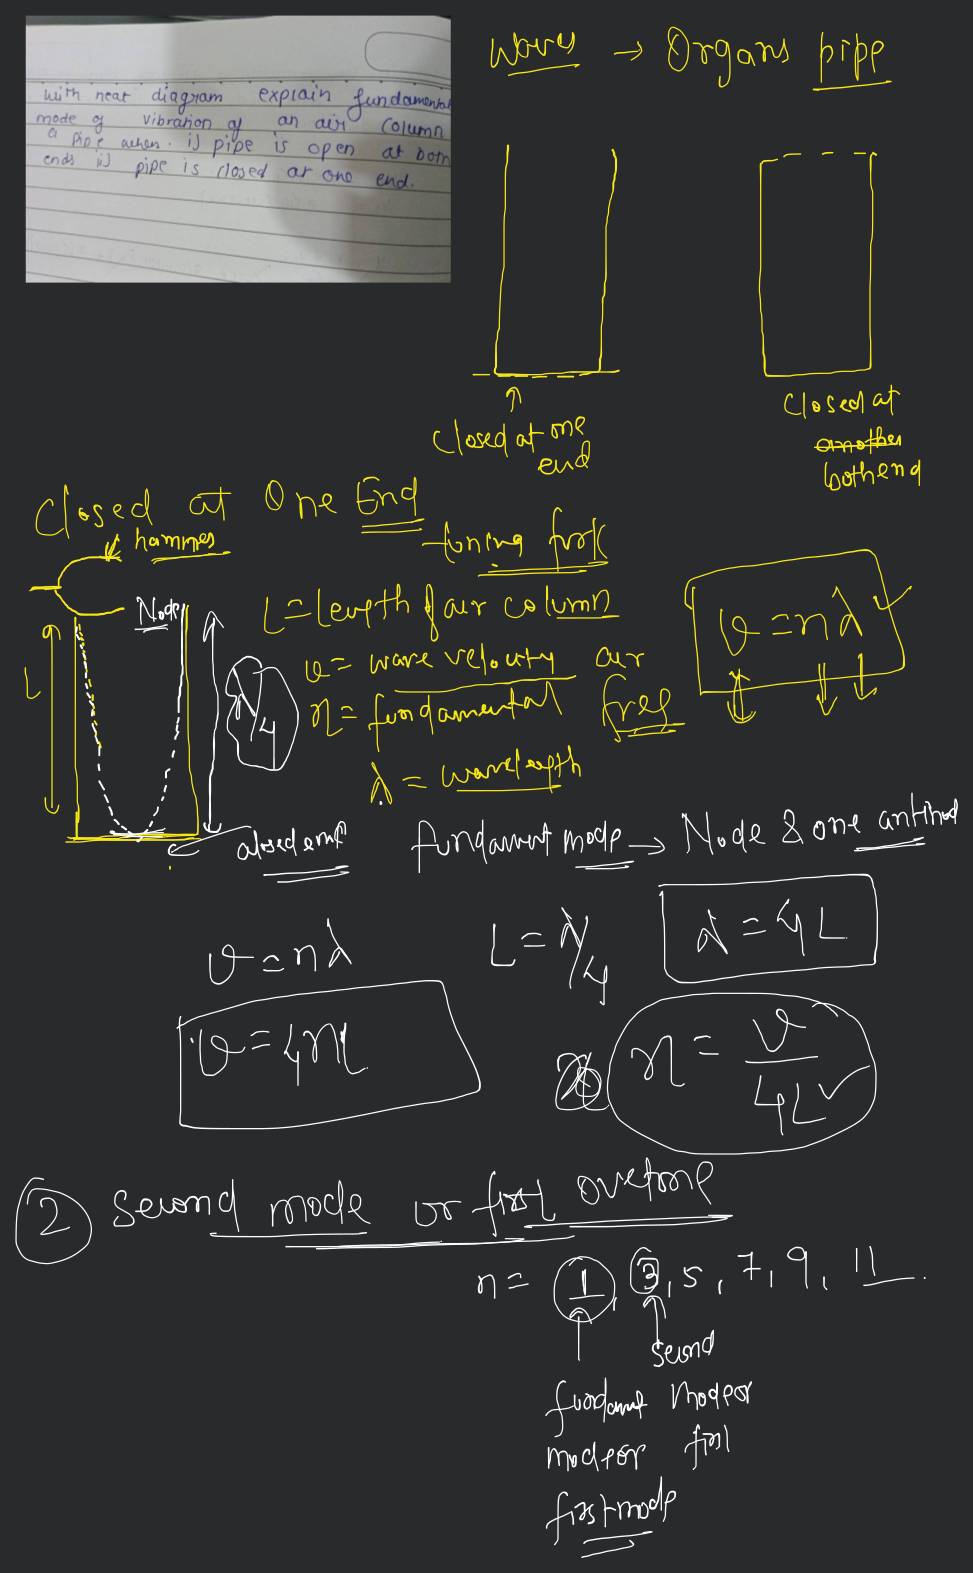 with neat diagram explain fundamental
mode of vibration of an air column
a pipe when. i) pipe is open at both
ends ii) pipe is closed at one end.
Waves → Organs pipe
Closed at one
end
Closed at
another
both end
Closed at One End
hammer
tuning fork
Node
L = Length of air column
v = nλ
L
λ/4
v = wave velocity air
n = fundamental freq
λ = wavelength
closed end
fundament mode → Node & one antinod
v = nλ
L = λ/4
λ = 4L
v = 4nL
n = v/4L
2 Second mode or first overtone
n = 1, 3, 5, 7, 9, 11
second
fundamt mode or
mode or first
first mode